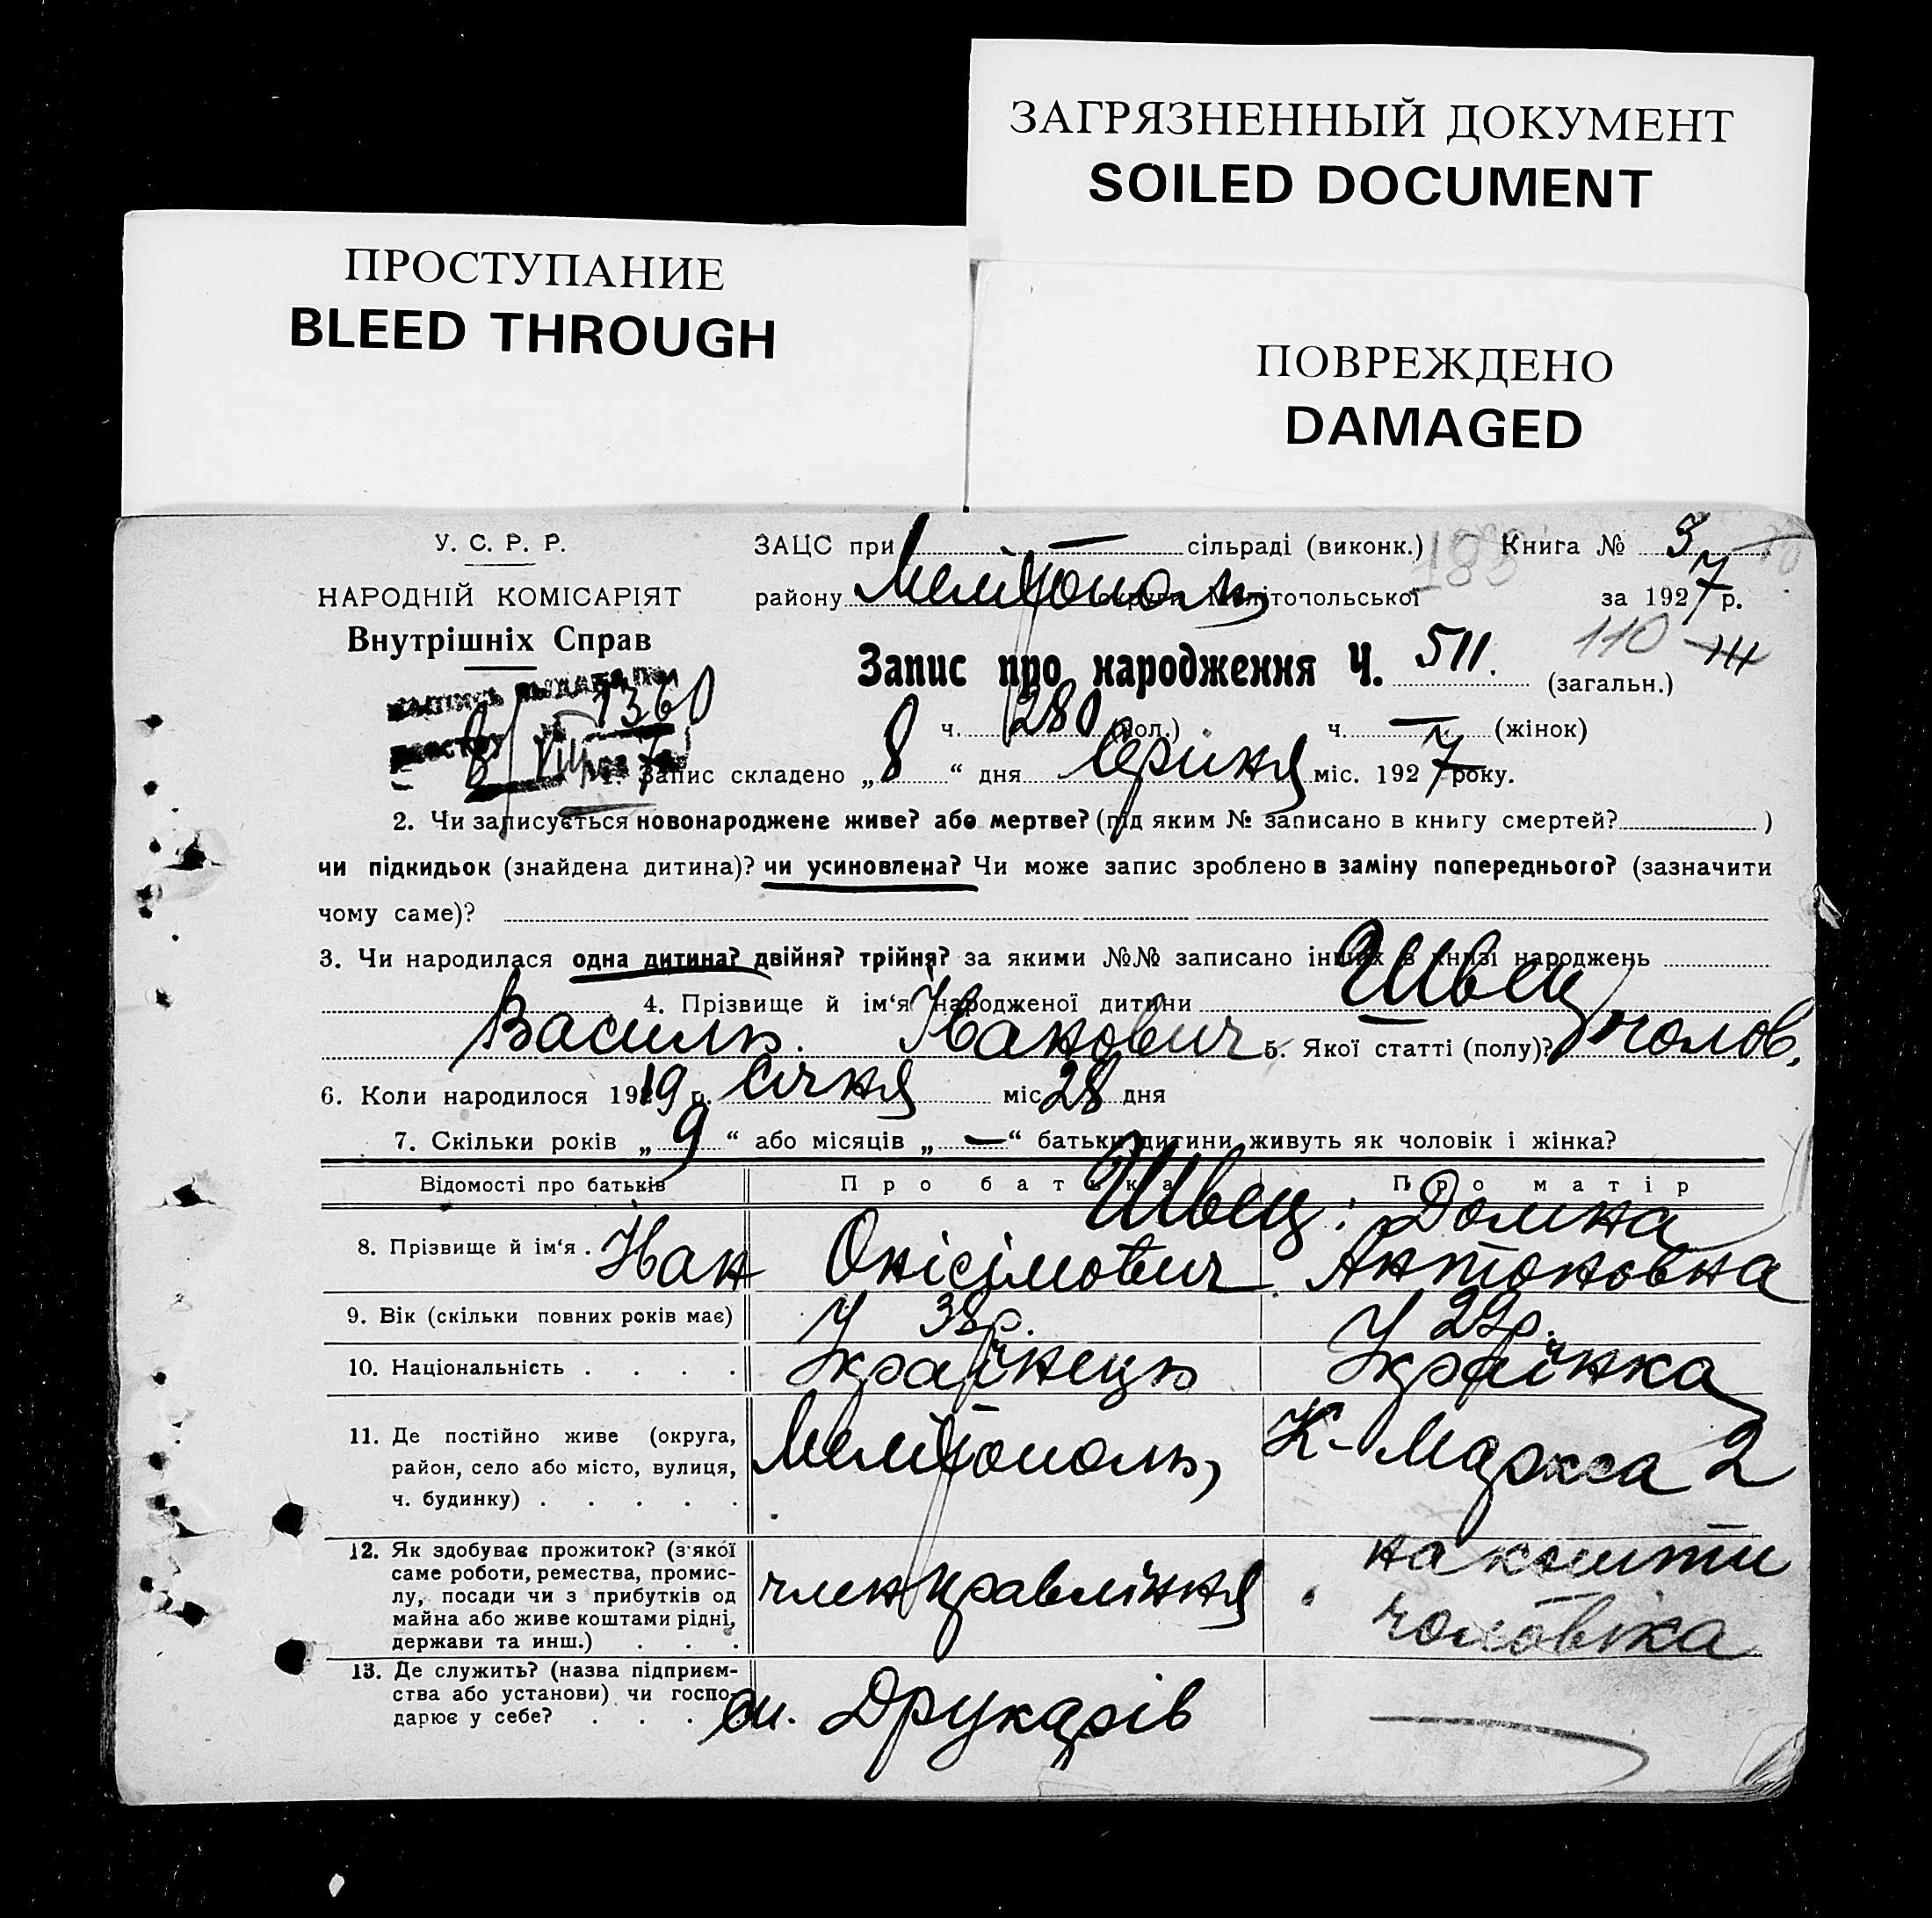 ЗАГРЯЗНЕННЫЙ ДОКУМЕНТ
SOILED DOCUMENT
ПРОСТУПАНИЕ
BLEED THROUGH
ПОВРЕЖДЕНО
DAMAGED
У. С. Р. Р.
НАРОДНІЙ КОМІСАРІЯТ
Внутрішніх Справ
ЗАЦС при — сільраді (виконк.) 183 Книга № 3
району Мелітополь округи Мелітопольської за 1927 р.
Запис про народження Ч. 511. (загальн.) 110
ч. 280 (чол.) ч. — (жінок)
1360
8/VIII
1. Запис складено „8“ дня Серпня міс. 1927 року.
2. Чи записується новонароджене живе? або мертве? (під яким № записано в книгу смертей? )
чи підкидьок (знайдена дитина)? чи усиновлена? Чи може запис зроблено в заміну попереднього? (зазначити
чому саме)?
3. Чи народилася одна дитина? двійня? трійня? за якими №№ записано інших в книзі народжень
4. Прізвище й ім‘я народженої дитини Швец
Василь Іванович 5. Якої статті (полу)? чолов.
6. Коли народилося 1919 р. Січня міс. 28 дня
7. Скільки років „9“ або місяців „—“ батьки дитини живуть як чоловік і жінка?
Відомості про батьків Про батька Про матір
Швец: Домна
8. Прізвище й ім‘я . Іван Онісімович Антоновна
9. Вік (скільки повних років має) 38р. 29р.
10. Національність . . . . Українець Українка
11. Де постійно живе (округа, район, село або місто, вулиця, ч. будинку) . . . . . Мелітополь, К-Маркса 2
12. Як здобуває прожиток? (з якої саме роботи, ремества, промислу, посади чи з прибутків од майна або живе коштами рідні, держави та инш.) . . . член правління на кошти чоловіка
13. Де служить? (назва підприємства або установи) чи господарює у себе? . . . . Друкарів